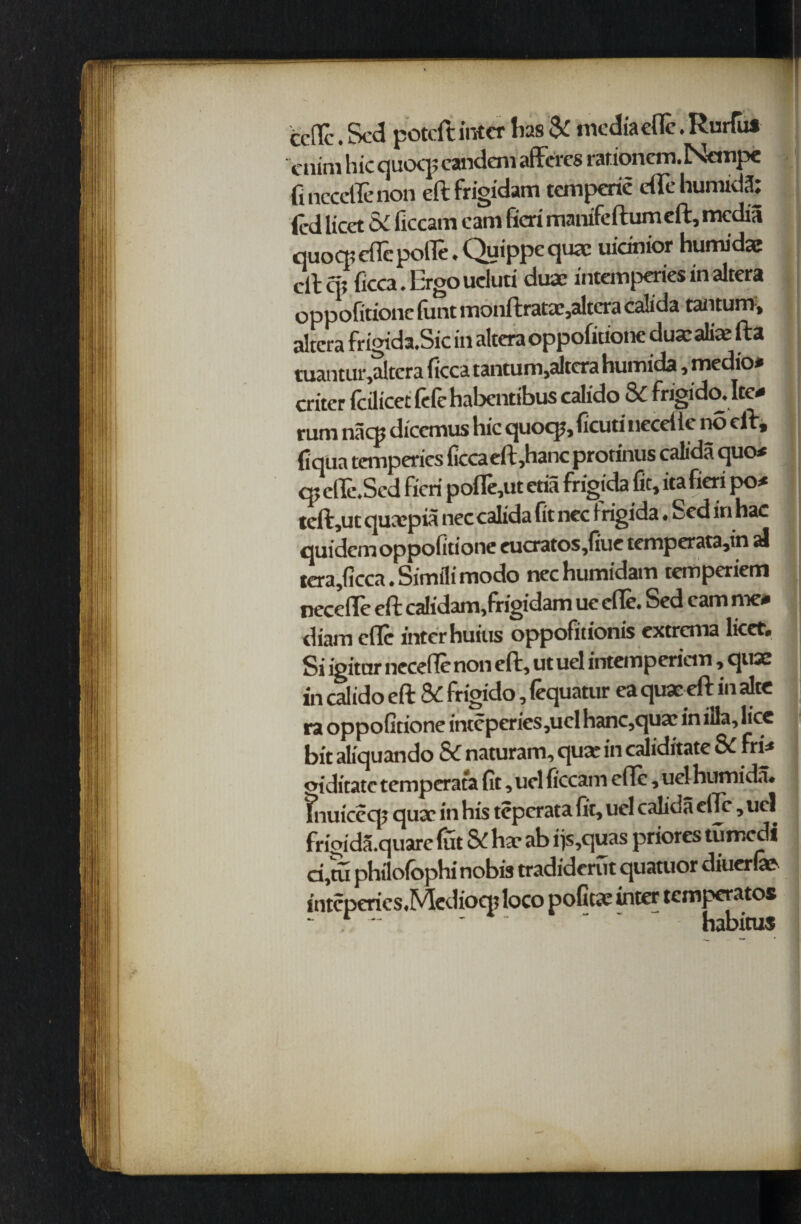 ceſſe. Sed poteſt inter has & media eſſe. Rurſus
enim hic quoqꝫ eandem aſſeres rationem. Nempe
ſi neceſſe non eſt frigidam temperiē eſſe humidā;
ſed licet & ſiccam eam fieri manifeſtum eſt, mediā
quoqꝫ eſſe poſſe. Quippe quæ uicinior humidæ
eſt qꝫ ſicca. Ergo ueluti duæ intemperies in altera
oppoſitione ſunt monſtratæ, altera calida tantum,
altera frigida. Sic in altera oppoſitione duæ aliæ ſta
tuantur, altera ſicca tantum, altera humida, medio-
criter ſcilicet ſeſe habentibus calido & frigido. Ite-
rum nāqꝫ dicemus hic quoqꝫ, ſicuti neceſſe nō eſt,
ſi qua temperies ſicca eſt, hanc protinus calidā quo-
qꝫ eſſe. Sed fieri poſſe, ut etiā frigida ſit, ita fieri po-
teſt, ut quæpiā nec calida ſit nec frigida. Sed in hac
quidem oppoſitione eucratos, ſiue temperata, in al
tera, ſicca. Simili modo nec humidam temperiem
neceſſe eſt calidam, frigidam ue eſſe. Sed eam me-
diam eſſe inter huius oppoſitionis extrema licet.
Si igitur neceſſe non eſt, ut uel intemperiem, quæ
in calido eſt & frigido, ſequatur ea quæ eſt in alte
ra oppoſitione intēperies, uel hanc, quæ in illa, lice
bit aliquando & naturam, quæ in caliditate & fri-
giditate temperata ſit, uel ſiccam eſſe, uel humidā.
Inuicēqꝫ quæ in his tēperata ſit, uel calidā eſſe, uel
frigidā. quare ſūt & hæ ab ijs, quas priores tū medi
ci, tū philoſophi nobis tradiderūt quatuor diuerſæ
intēperies. Medioqꝫ loco poſitæ inter temperatos
habitus